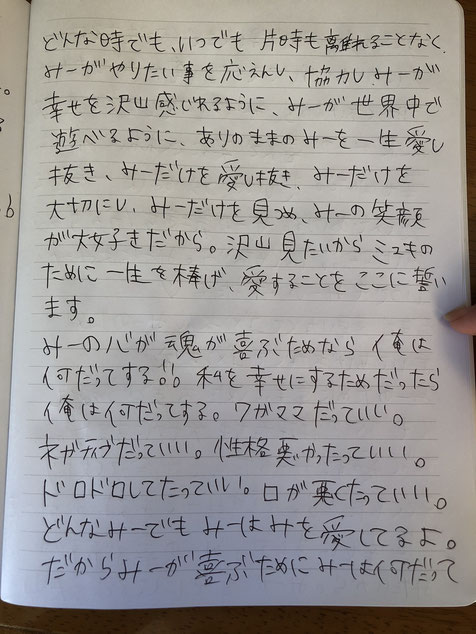 どんな時でも、いつでも 片時も離れることなく、
みーがやりたい事を応えんし、協力し、みーが
幸せを沢山感じれるように、みーが世界中で
遊べるように、ありのままのみーを一生愛し
抜き、みーだけを愛し抜き、みーだけを
大切にし、みーだけを見つめ、みーの笑顔
が大好きだから。沢山見たいからミユキの
ために一生を棒げ、愛することをここに誓い
ます。
みーの心が魂が喜ぶためなら俺は
何だってする!!。私を幸せにするためだったら
俺は何だってする。ワガママだっていい。
ネガティブだっていい。性格悪かったっていい。
ドロドロしてたっていい。口が悪くたっていい。
どんなみーでもみーはみを愛してるよ。
だからみーが喜ぶためにみーは何だって